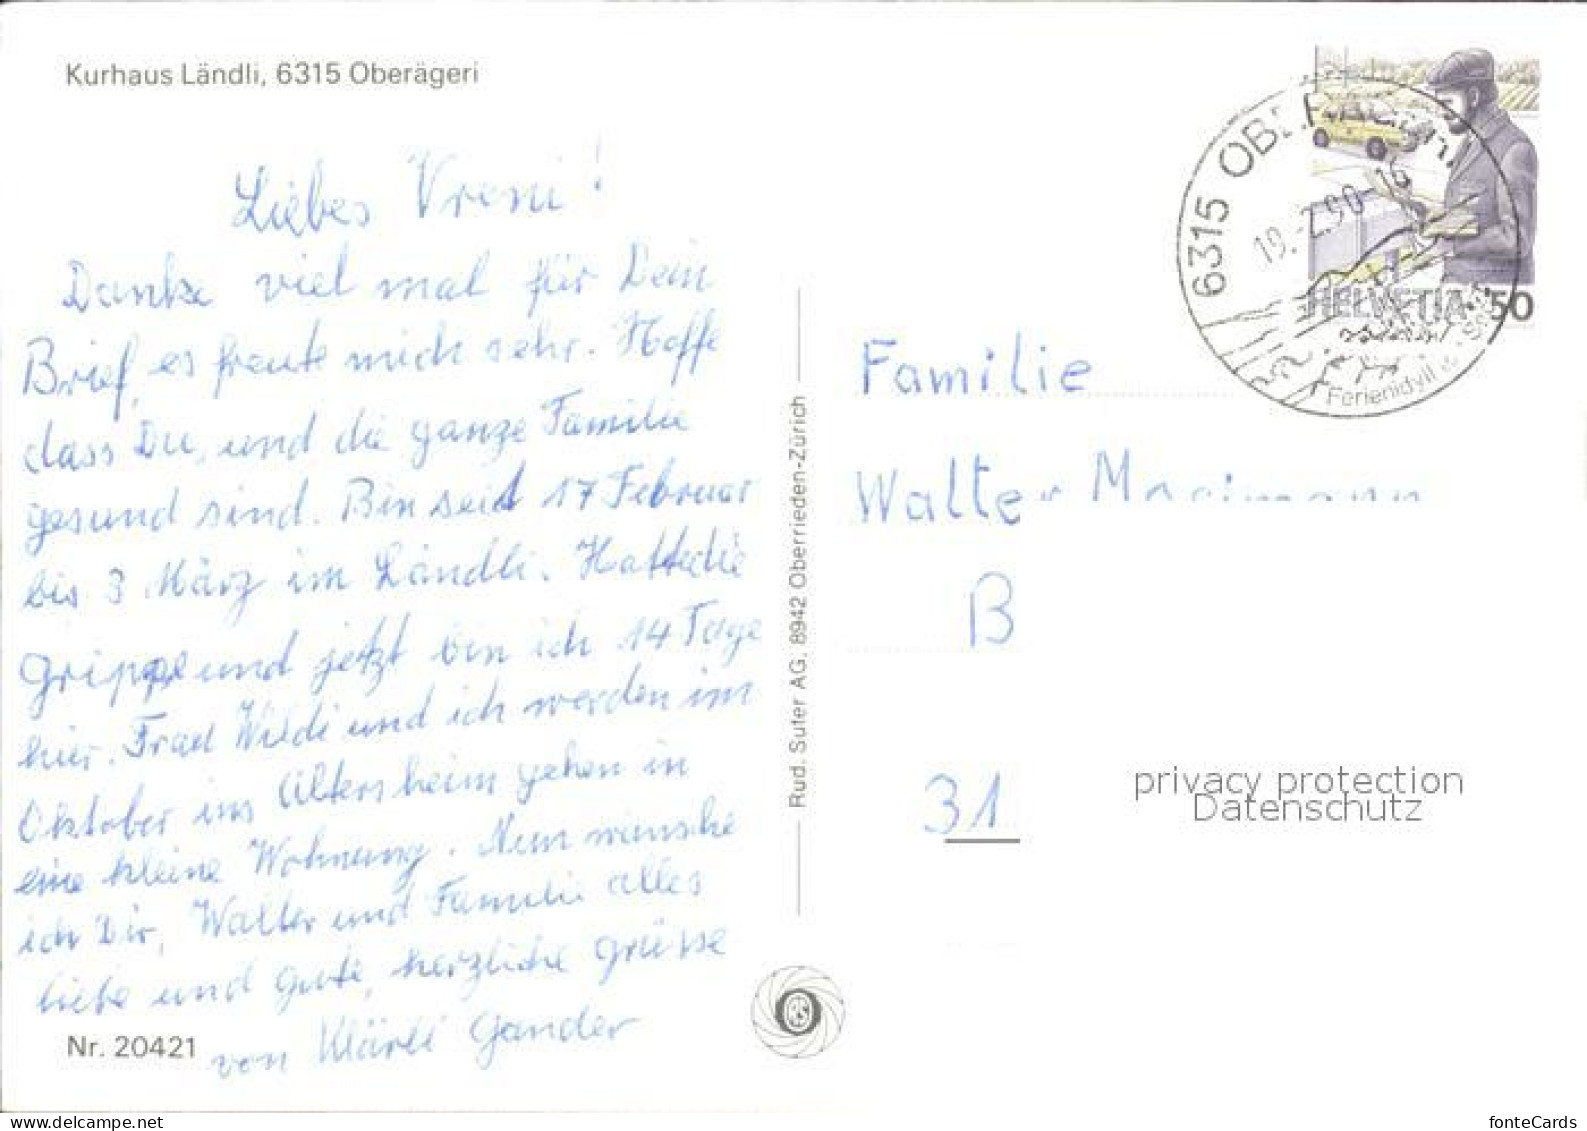 Kurhaus Ländli, 6315 Oberägeri
Liebes Vreni!
Danke viel mal für Dein
Brief, es freute mich sehr. Hoffe
dass Du, und die ganze Familie
gesund sind. Bin seid 17 Februar
bis 3 März im Ländli. Hatte die
Grippe und jetzt bin ich 14 Tage
hier. Frau Wildi und ich werden im
Oktober ins Altersheim gehen in
eine kleine Wohnung. Nun wünsche
ich Dir, Walter und Familie alles
liebe und gute, herzliche Grüsse
von Klärli Gander
Nr. 20421
Rud. Suter AG, 8942 Oberrieden-Zürich
6315 OBERÄGERI
19.-2.90-16
Ferienidyll
HELVETIA 50
Familie
Walter
B
31
privacy protection
Datenschutz
fonteCards